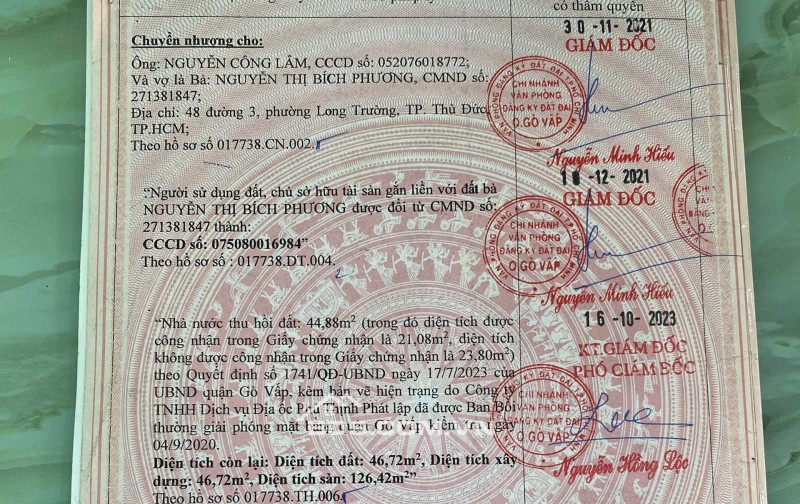 có thẩm quyền
30-11-2021
GIÁM ĐỐC
Chuyển nhượng cho:
Ông: NGUYỄN CÔNG LÂM, CCCD số: 052076018772;
Và vợ là Bà: NGUYỄN THỊ BÍCH PHƯƠNG, CMND số:
271381847;
Địa chỉ: 48 đường 3, phường Long Trường, TP. Thủ Đức,
TP.HCM;
Theo hồ sơ số 017738.CN.002.
VĂN PHÒNG ĐĂNG KÝ ĐẤT ĐAI TP.HỒ CHÍ MINH
CHI NHÁNH
VĂN PHÒNG
ĐĂNG KÝ ĐẤT ĐAI
Q.GÒ VẤP
Nguyễn Minh Hiếu
"Người sử dụng đất, chủ sở hữu tài sản gắn liền với đất bà
NGUYỄN THỊ BÍCH PHƯƠNG được đổi từ CMND số:
271381847 thành:
CCCD số: 075080016984"
Theo hồ sơ số : 017738.DT.004.
-12-2021
GIÁM ĐỐC
CHI NHÁNH
VĂN PHÒNG
ĐĂNG KÝ ĐẤT ĐAI
Q.GÒ VẤP
Nguyễn Minh Hiếu
"Nhà nước thu hồi đất: 44,88m² (trong đó diện tích được
công nhận trong Giấy chứng nhận là 21,08m², diện tích
không được công nhận trong Giấy chứng nhận là 23,80m²)
theo Quyết định số 1741/QĐ-UBND ngày 17/7/2023 của
UBND quận Gò Vấp, kèm bản vẽ hiện trạng do Công ty
TNHH Dịch vụ Địa ốc Phú Thịnh Phát lập đã được Ban Bồi
thường giải phóng mặt bằng quận Gò Vấp kiểm tra ngày
04/9/2020.
Diện tích còn lại: Diện tích đất: 46,72m², Diện tích xây
dựng: 46,72m², Diện tích sàn: 126,42m²"
Theo hồ sơ số 017738.TH.006
16-10-2023
KT.GIÁM ĐỐC
PHÓ GIÁM ĐỐC
CHI NHÁNH
VĂN PHÒNG
ĐĂNG KÝ ĐẤT ĐAI
Q.GÒ VẤP
Nguyễn Hồng Lộc